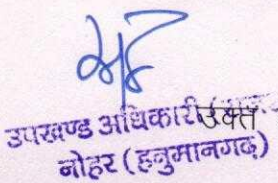 उपखण्ड अधिकारी उक्त
नोहर (हनुमानगढ़)